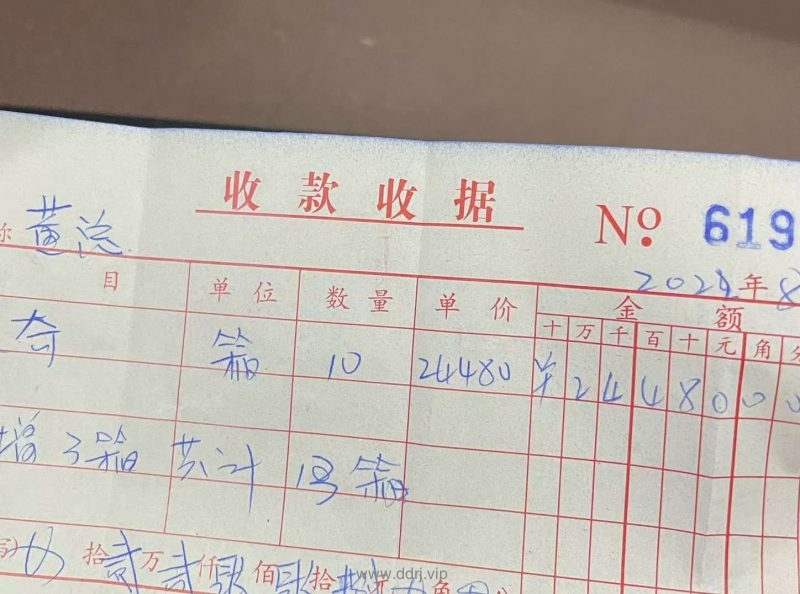 收款收据 No. 619
黄总
2024年8
目 单位 数量 单价 金额
十万千百十元角分
奇 箱 10 24480 ¥2448000
增3箱 共计13箱
拾 万 仟 佰 拾 元 角
www.ddrj.vip